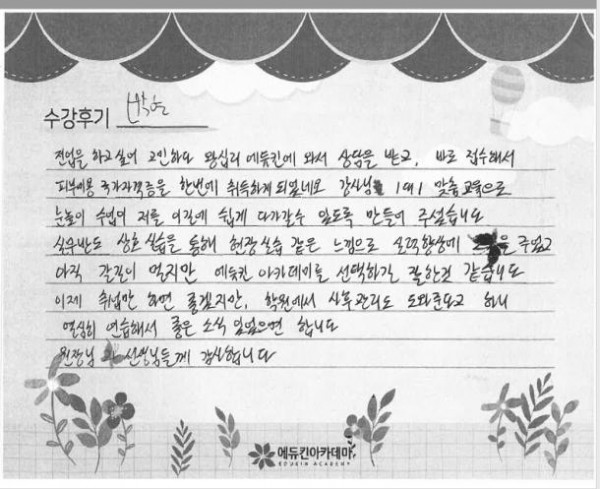 수강후기
전업을 하고싶어 고민하다 왕십리 에듀킨에 와서 상담을 받고, 바로 접수해서
피부미용 국가자격증을 한번에 취득하게 되었네요 강사님 1대1 맞춤교육으로
눈높이 수업이 저를 이길에 쉽게 다가갈수 있도록 만들어 주셨습니다
실무반도 상호실습을 통해 현장실습 같은 느낌으로 실력향상에 을 주었고
아직 갈길이 멀지만 에듀킨 아카데미를 선택하길 잘한것 같습니다
이제 취업만 하면 좋겠지만, 학원에서 사후관리도 도와준다고 하니
열심히 연습해서 좋은 소식 있었으면 합니다
원장님 과 선생님들께 감사합니다
에듀킨아카데미
EDUKIN ACADEMY